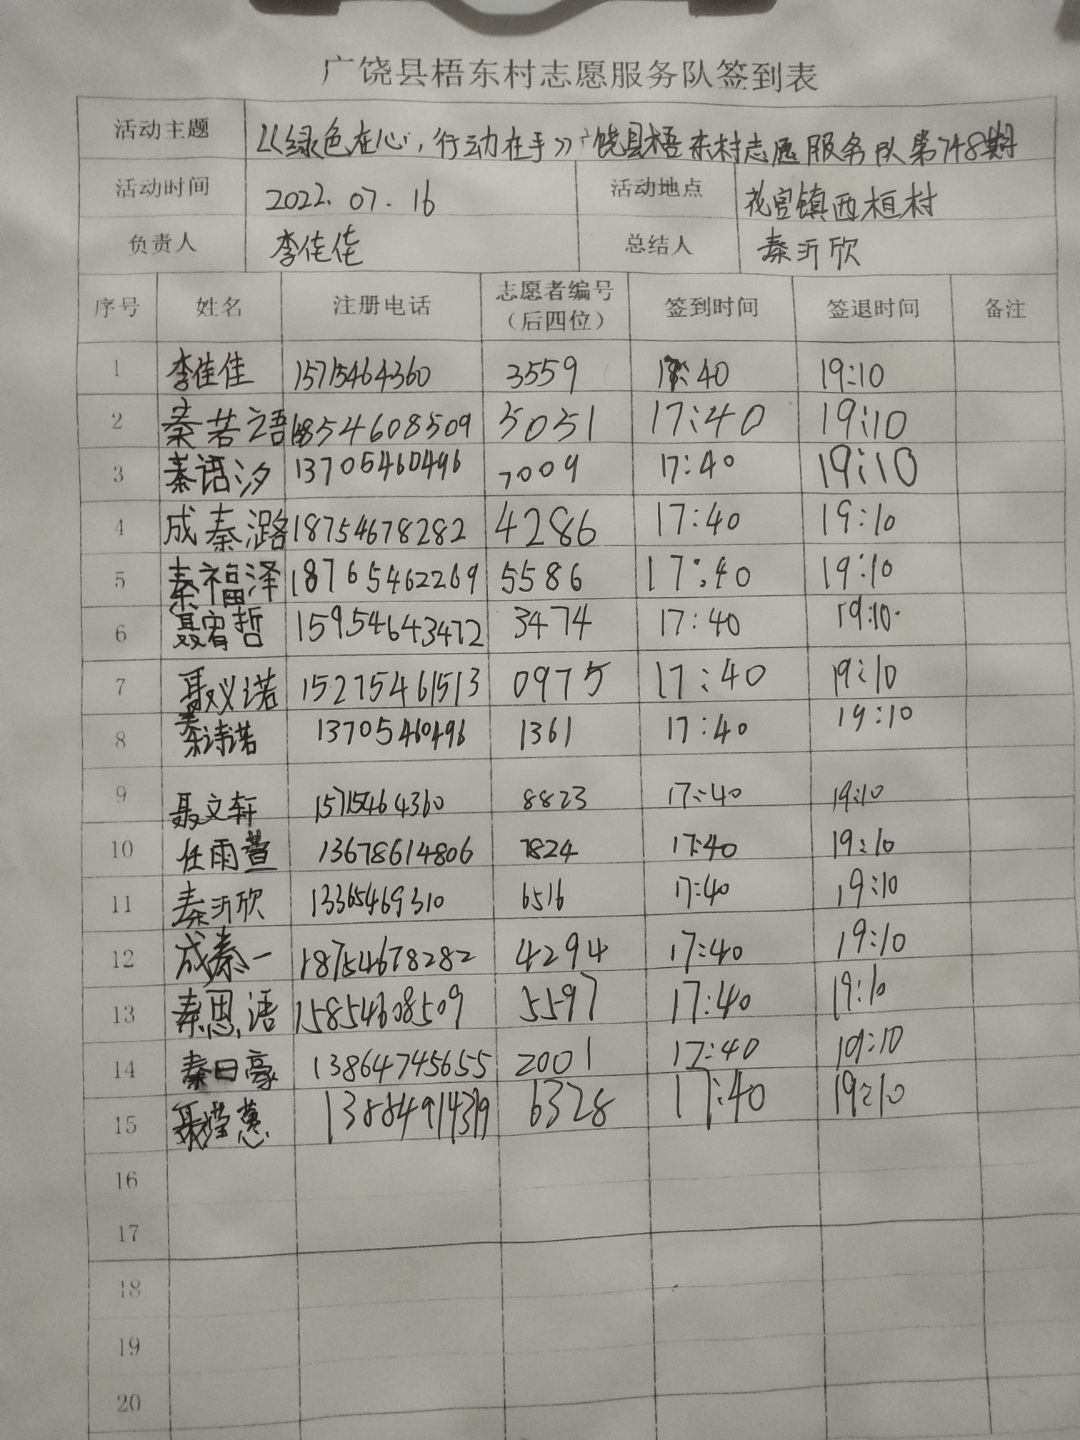 广饶县梧东村志愿服务队签到表
活动主题 《绿色在心，行动在手》广饶县梧东村志愿服务队第748期
活动时间 2022.07.16 活动地点 花官镇西桓村
负责人 李佳佳 总结人 秦沂欣
序号 姓名 注册电话 志愿者编号（后四位） 签到时间 签退时间 备注
1 李佳佳 15715464360 3559 17:40 19:10
2 秦若语 1854608509 5051 17:40 19:10
3 秦语汐 13705460496 7009 17:40 19:10
4 成秦潞 18754678282 4286 17:40 19:10
5 秦福泽 18765462269 5586 17:40 19:10
6 聂宥哲 15954643472 3474 17:40 19:10
7 聂义诺 15275461513 0975 17:40 19:10
8 秦诗诺 13705460496 1361 17:40 19:10
9 聂文轩 15715464360 8823 17:40 19:10
10 任雨萱 13678614806 7824 17:40 19:10
11 秦沂欣 13365469310 6516 17:40 19:10
12 成秦一 18754678282 4294 17:40 19:10
13 秦思语 15854608509 5597 17:40 19:10
14 秦日豪 13864745655 2001 17:40 19:10
15 聂莹蕙 13884914319 6328 17:40 19:10
16
17
18
19
20